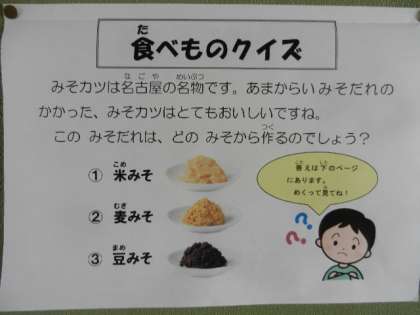 食べものクイズ
みそカツは名古屋の名物です。あまからいみそだれの
かかった、みそカツはとてもおいしいですね。
この みそだれは、どの みそから作るのでしょう？
① 米みそ
② 麦みそ
③ 豆みそ
答えは下のページ
にあります。
めくって見てね！
？？